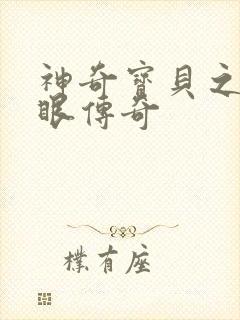 神奇寶貝之
眼傳奇
樸有座